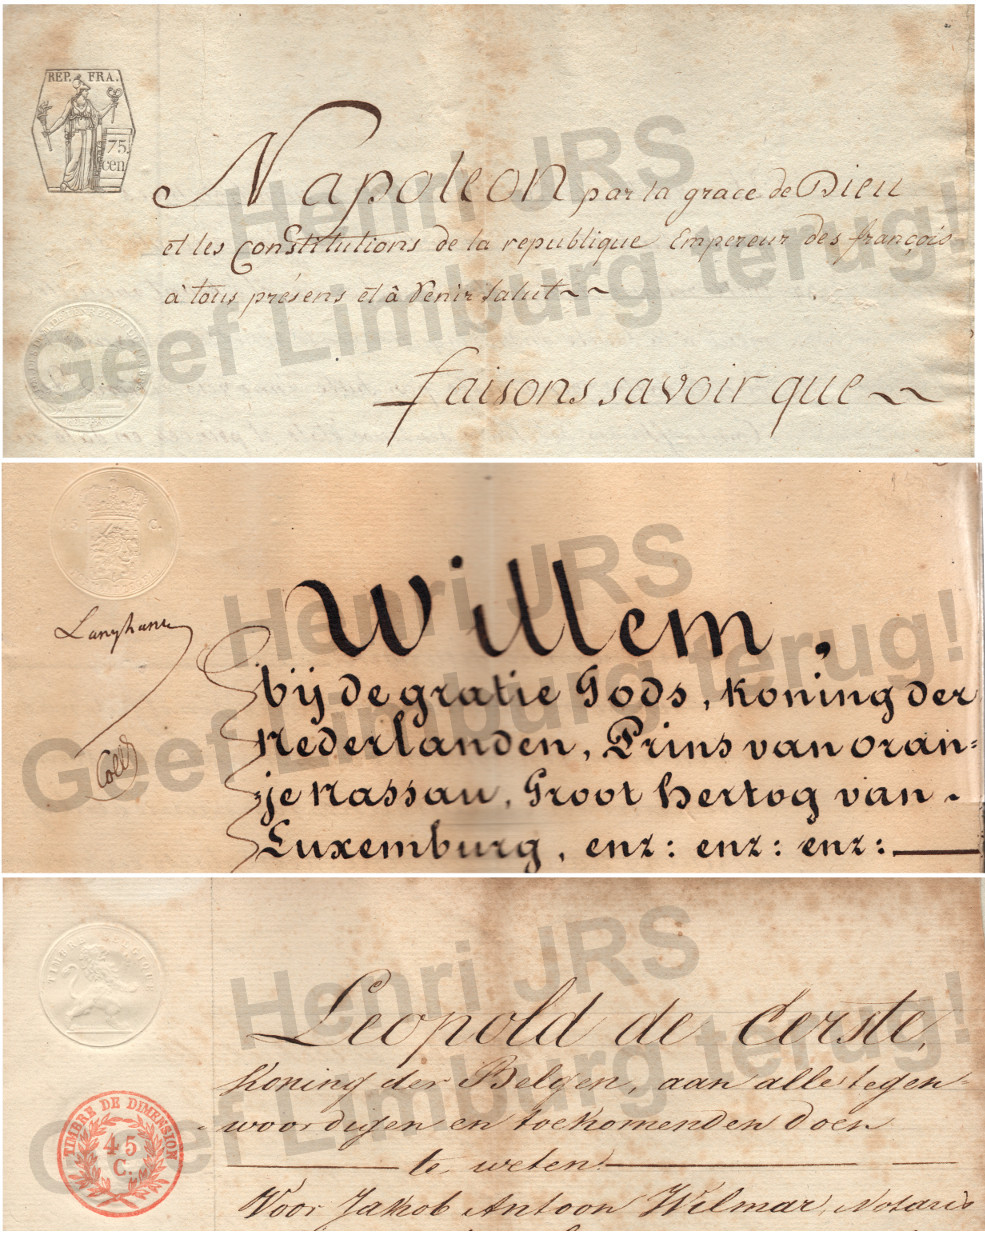 REP. FRA.
75.
cen
Napoleon par la grace de Dieu
et les constitutions de la republique Empereur des françois
à tous présens et à venir salut~~
faisons savoir que~~
Henri JRS
Geef Limburg terug!
Willem,
bij de gratie Gods, koning der
Nederlanden, Prins van oran=
je Nassau, Groot hertog van
Luxemburg, enz: enz: enz:
Henri JRS
Geef Limburg terug!
Leopold de Eerste,
Koning der Belgen, aan alle tegen=
woordigen en toekomenden doen
te weten
TIMBRE DE DIMENSION
45
C.
Voor Jakob Antoon Wilmar, Notaris
Henri JRS
Geef Limburg terug!